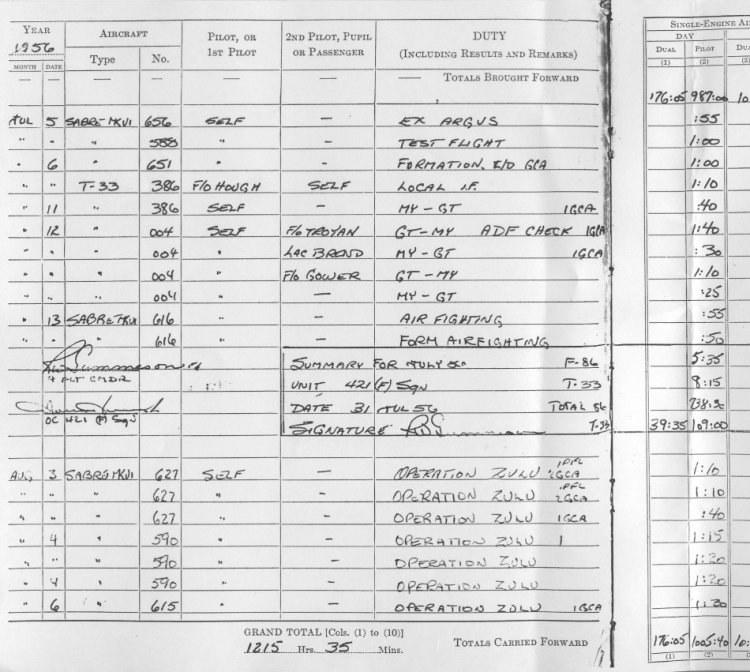 YEAR 1956 AIRCRAFT PILOT, OR 1ST PILOT 2ND PILOT, PUPIL OR PASSENGER DUTY (INCLUDING RESULTS AND REMARKS) SINGLE-ENGINE AI
DAY
MONTH DATE Type No. DUAL PILOT DUA
(1) (2) (3)
— — — — — — — TOTALS BROUGHT FORWARD 176:05 987:00 10
JUL 5 SABRE MKVI 656 SELF — EX ARGUS :55
" " " 588 " — TEST FLIGHT 1:00
" 6 " 651 " — FORMATION, GCA 1:00
" " T-33 386 F/O HOUGH SELF LOCAL I.F. 1:10
" 11 " 386 SELF — MY-GT 1GCA :40
" 12 " 004 SELF F/O TROYAN GT-MY ADF CHECK 1GCA 1:40
" 004 " LAC BROND MY-GT 1GCA :30
" " " 004 " F/O GOWER GT-MY 1:10
" " " 004 " — MY-GT :25
" 13 SABRE MKVI 616 " — AIR FIGHTING :55
" 616 " — FORM AIRFIGHTING :50
SUMMARY FOR JULY F-86 5:35
F/L
FLT CMDR UNIT 421 (F) Sqn T-33 8:15
DATE 31 JUL 56 TOTAL 86 738:30
OC 421 (F) Sqn SIGNATURE T-33 39:35 109:00
AUG 3 SABRE MKVI 627 SELF — OPERATION ZULU 1PFL 2GCA 1:10
" " 627 " — OPERATION ZULU 1PFL 2GCA 1:10
" " " 627 " — OPERATION ZULU 1GCA :40
" 4 " 590 " — OPERATION ZULU 1 1:15
" " " 590 " — OPERATION ZULU 1:20
" 4 " 590 " — OPERATION ZULU 1:20
" 6 " 615 " — OPERATION ZULU 1GCA 1:30
GRAND TOTAL [Cols. (1) to (10)]
1215 Hrs. 35 Mins. TOTALS CARRIED FORWARD 176:05 1005:40 10:
(1) (2)